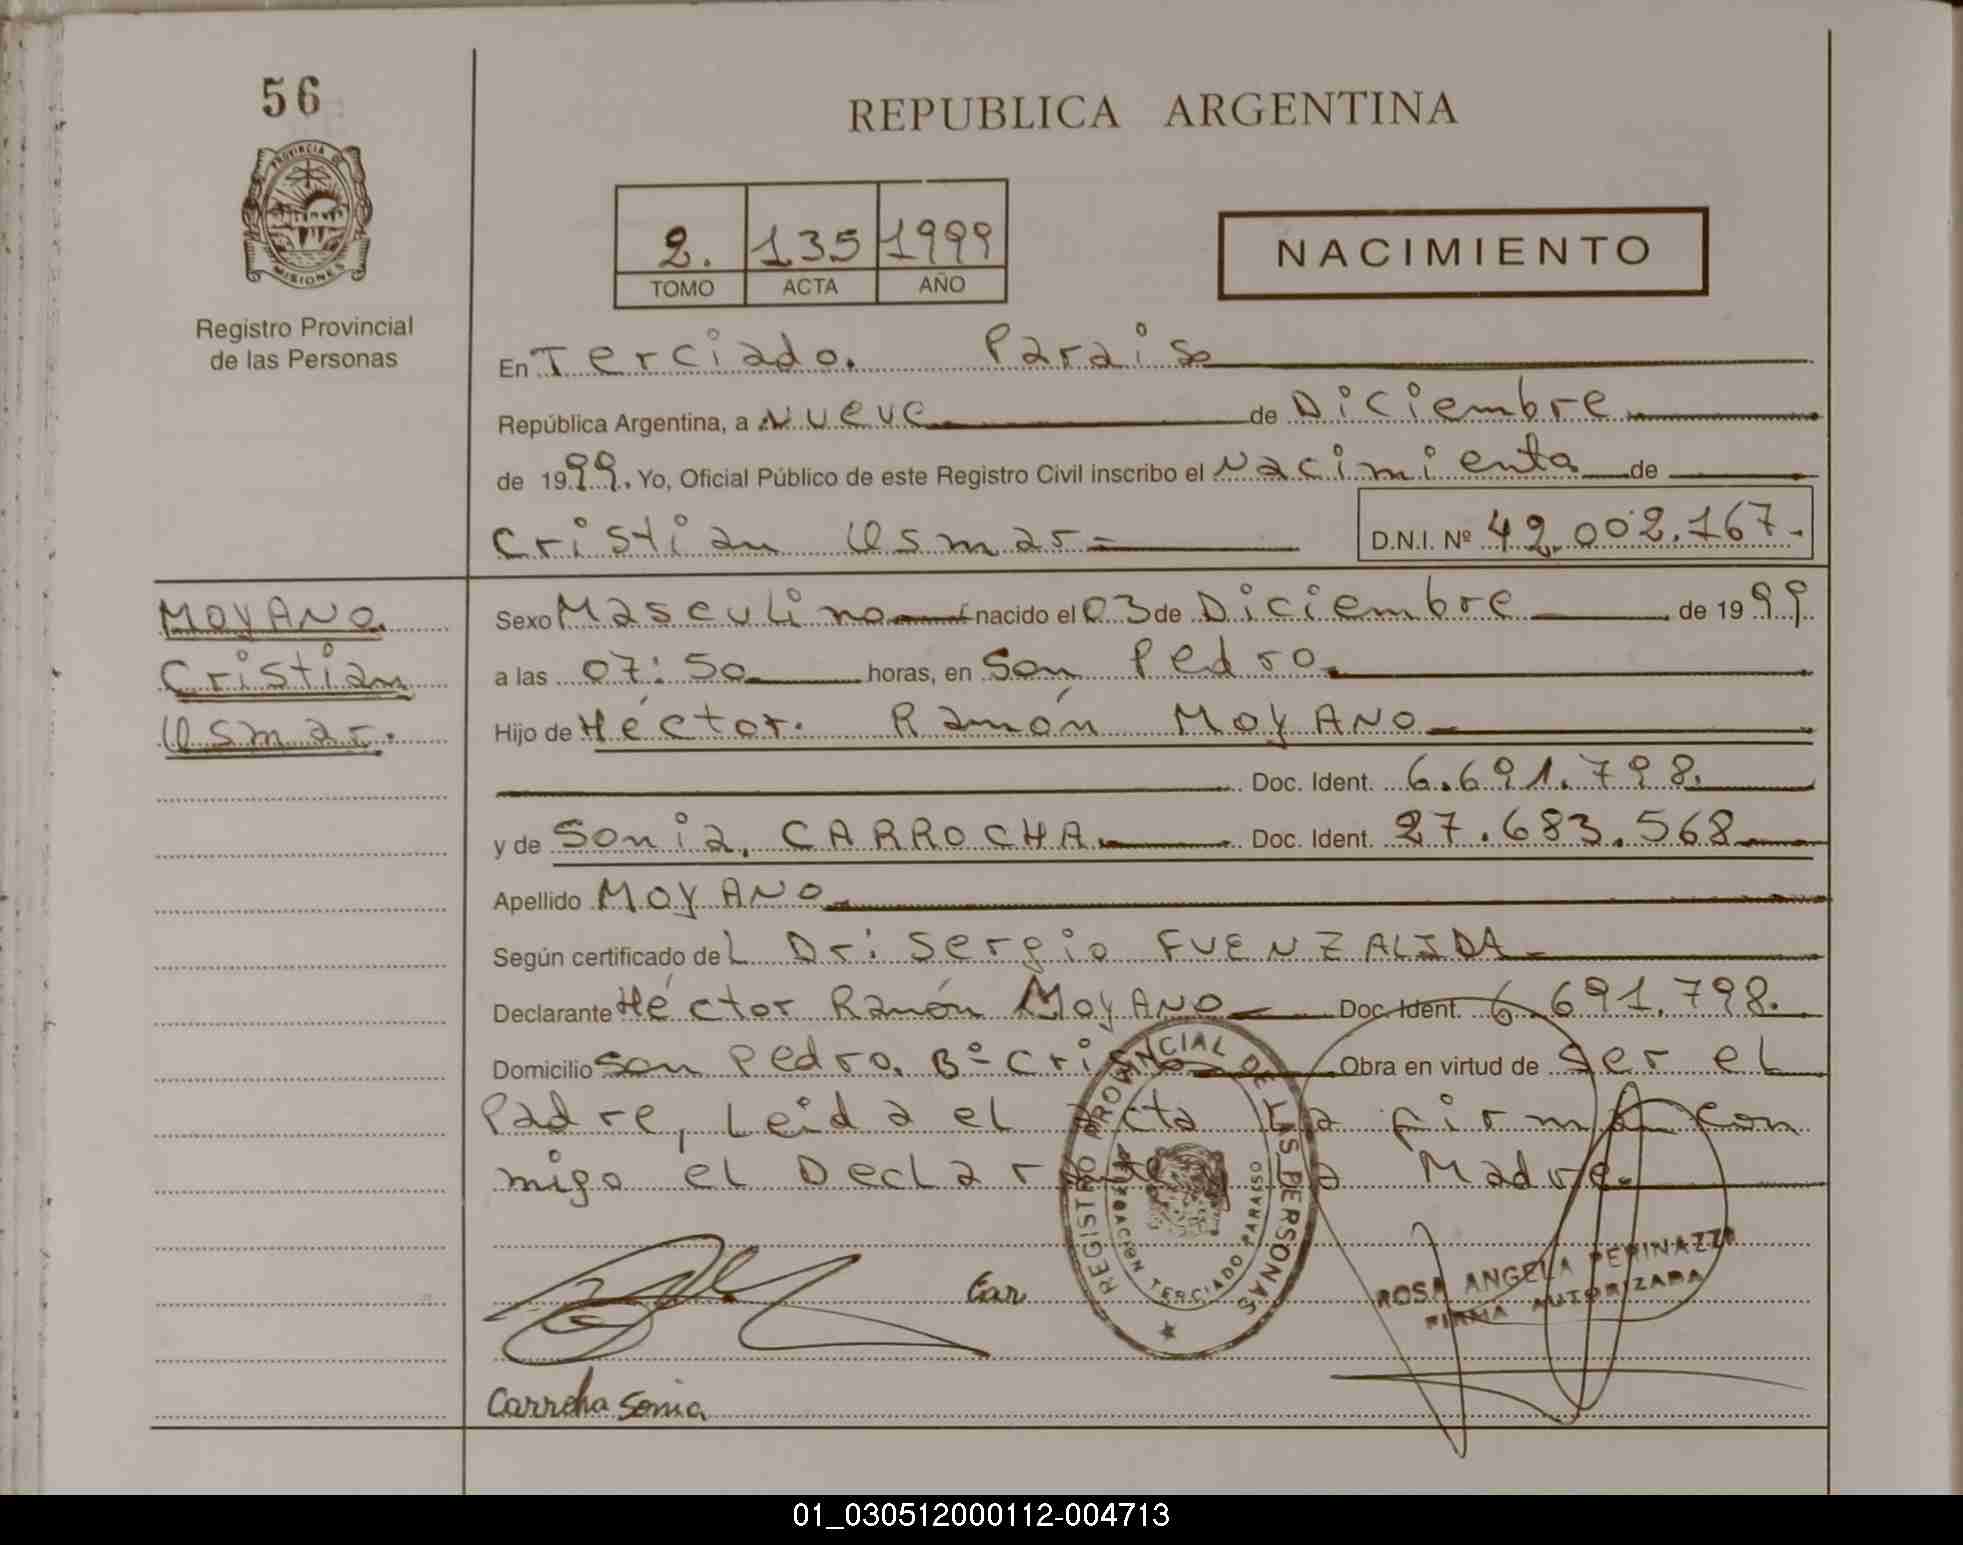 56
PROVINCIA DE
MISIONES
Registro Provincial
de las Personas
REPUBLICA ARGENTINA
2. 135 1999
TOMO ACTA AÑO
NACIMIENTO
En Terciado. Paraiso
República Argentina, a Nueve de Diciembre
de 1999. Yo, Oficial Público de este Registro Civil inscribo el Nacimiento de
Cristian Osmar.= D.N.I. Nº 42.002.167.-
MOYANO.
Cristian
Osmar.
Sexo Masculino nacido el 03 de Diciembre de 1999.
a las 07:50 horas, en San Pedro.
Hijo de Héctor. Ramón MOYANO
Doc. Ident. 6.691.798.
y de Sonia. CARROCHA. Doc. Ident. 27.683.568
Apellido MOYANO.
Según certificado del Dr: Sergio FUENZALIDA
Declarante Héctor Ramón MOYANO Doc. Ident. 6.691.798.
Domicilio San Pedro. Bº- Obra en virtud de ser el
Padre, Leida el acta La firman con
migo el la Madre.
REGISTRO PROVINCIAL DE LAS PERSONAS
TERCIADO PARAISO
Car
ROSA ANGELA PERINAZZO
FIRMA AUTORIZADA
Carrocha Sonia
01_030512000112-004713